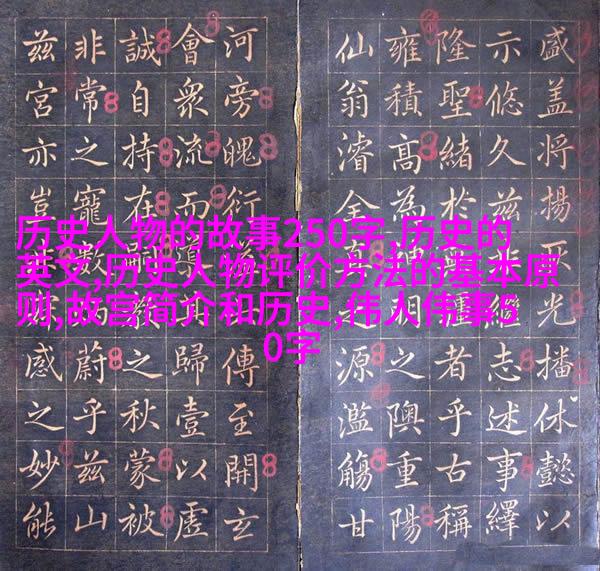 历史人物的故事250字,历史的
英文,历史人物评价方法的基本原
则,故宫简介和历史,伟人伟事5
0字
盛盖将揚光播休懿以
示悠久茲繼志述事繹
隆聖緒於者乎古稱
雍積高為明之隩重陽
仙翁濬全真源濫觴甘
河旁魄衍傳至開玄
會衆流而導歸壹以虛
誠自持在嗣之秋蒙被
非常之寵數蔚乎茲山
茲宮亦豈感之妙能